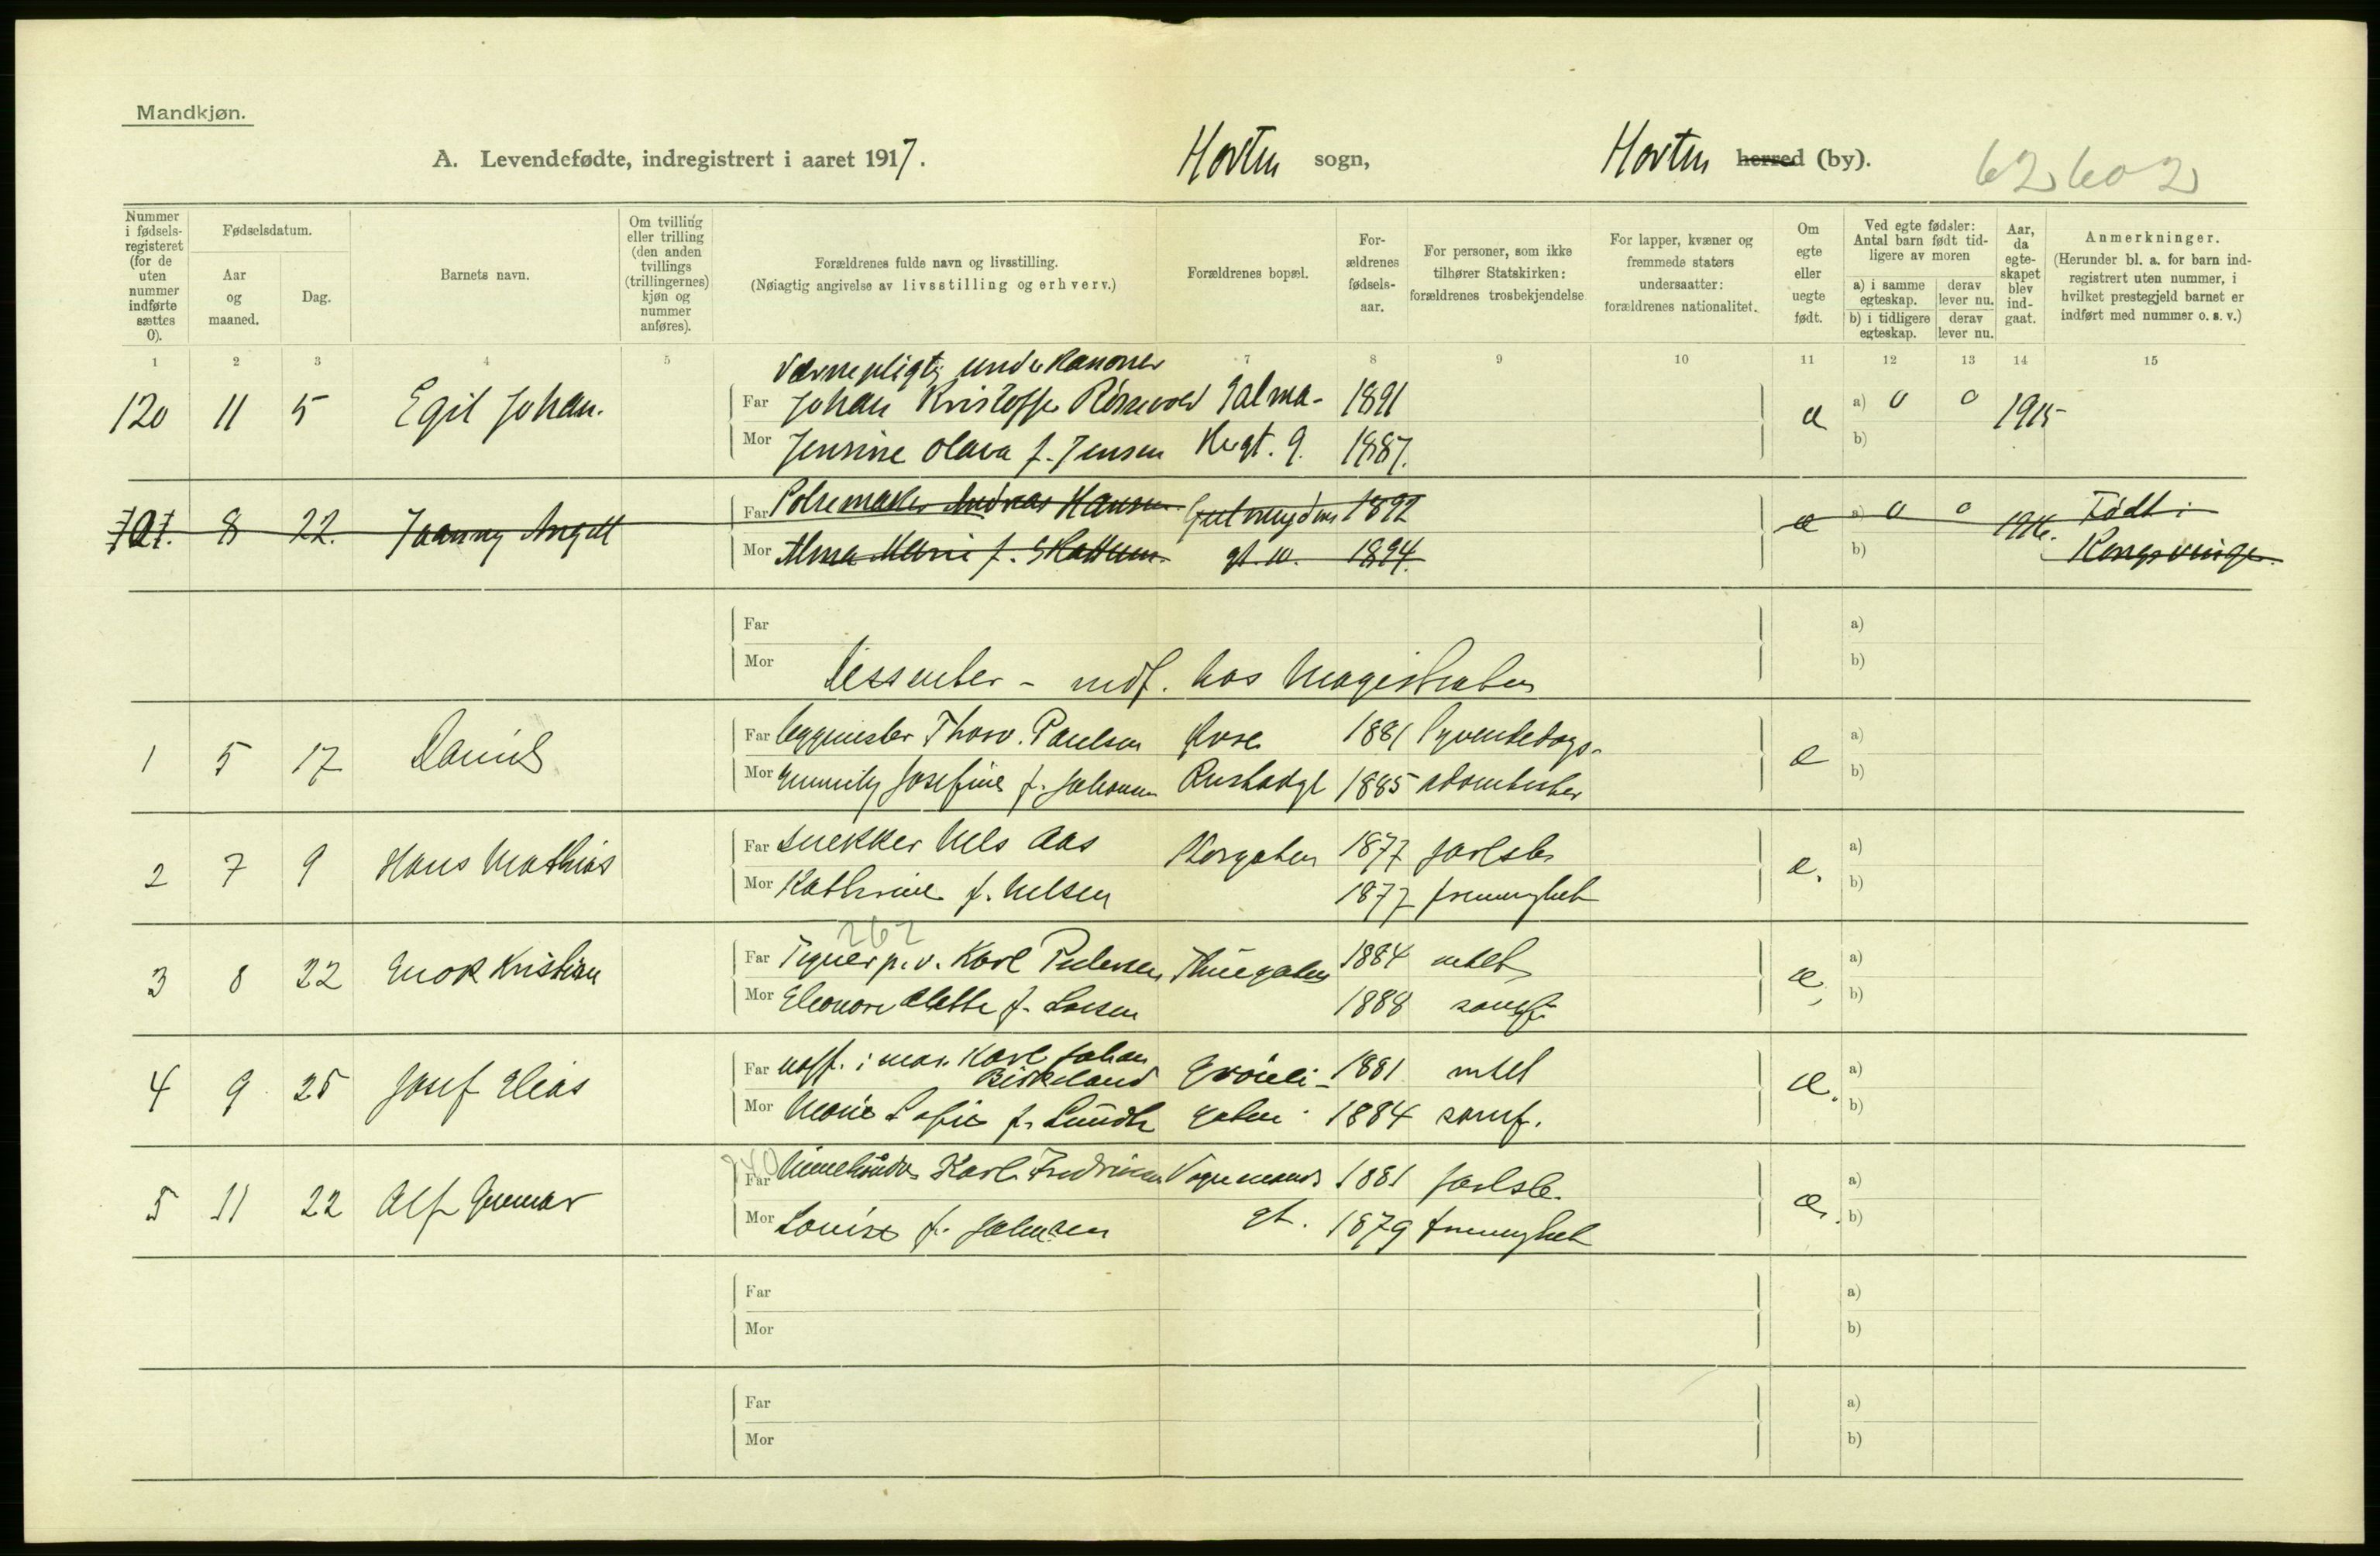 Mandkjøn.
A. Levendefødte, indregistrert i aaret 1917. Horten sogn, Horten herred (by). 62602
Nummer i fødsels-registeret (for de uten nummer indførte sættes 0).
Fødselsdatum.
Aar og maaned.
Dag.
Barnets navn.
Om tvilling eller trilling (den anden tvillings (trillingernes) kjøn og nummer anføres).
Forældrenes fulde navn og livsstilling.
(Nøiagtig angivelse av livsstilling og erhverv.)
Forældrenes bopæl.
For-ældrenes fødsels-aar.
For personer, som ikke tilhører Statskirken: forældrenes trosbekjendelse
For lapper, kvæner og fremmede staters undersaatter: forældrenes nationalitet.
Om egte eller uegte født.
Ved egte fødsler: Antal barn født tid-ligere av moren
a) i samme egteskap. derav lever nu.
b) i tidligere egteskap. derav lever nu.
Aar, da egte-skapet blev ind-gaat.
Anmerkninger.
(Herunder bl. a. for barn ind-registrert uten nummer, i hvilket prestegjeld barnet er indført med nummer o. s. v.)
1 2 3 4 5 7 8 9 10 11 12 13 14 15
Værnepligtig underkanoner
120 11 5 Egil Johan. Far Johan Kristoffer 1891 æ a) 0 0 1915
Mor Jensine Olava f. Jensen gt. 9. 1887. b)
121. 8 22. Far Pølsemaker Andreas Hansen 1892 æ a) 0 0 1916. Født i
Mor Alma Marie f. Skattum. gt. 10. 1894. b) Kongsvinger.
Far a)
Mor Dissenter - hos Magistraten b)
1 5 17 Daniel Far Thorv. Paulsen Øvre 1881 Syvendedags- æ a)
Mor Josefine f. 1885 adventister b)
2 7 9 Hans Mathias Far Snekker Nels Aas Storgaten 1877 Jarlsb. æ. a)
Mor Kathrine f. Nelsen 1877 frimenighet b)
262
3 8 22 Enok Kristian Far Karl Pedersen 1884 æ, a)
Mor Eleonore f. Larsen 1888 samf. b)
4 9 25 Josef Elias Far Karl Johan
Birkeland 1881 æ. a)
Mor Marie Sofie f. Lundh gaten 1884 samf. b)
5 11 22 Alf Gunnar Far Karl Fredriksen Vognmands 1881 Jarlsb. æ. a)
Mor Louise f. Johnsen gt. 1879 frimenighet b)
Far a)
Mor b)
Far a)
Mor b)